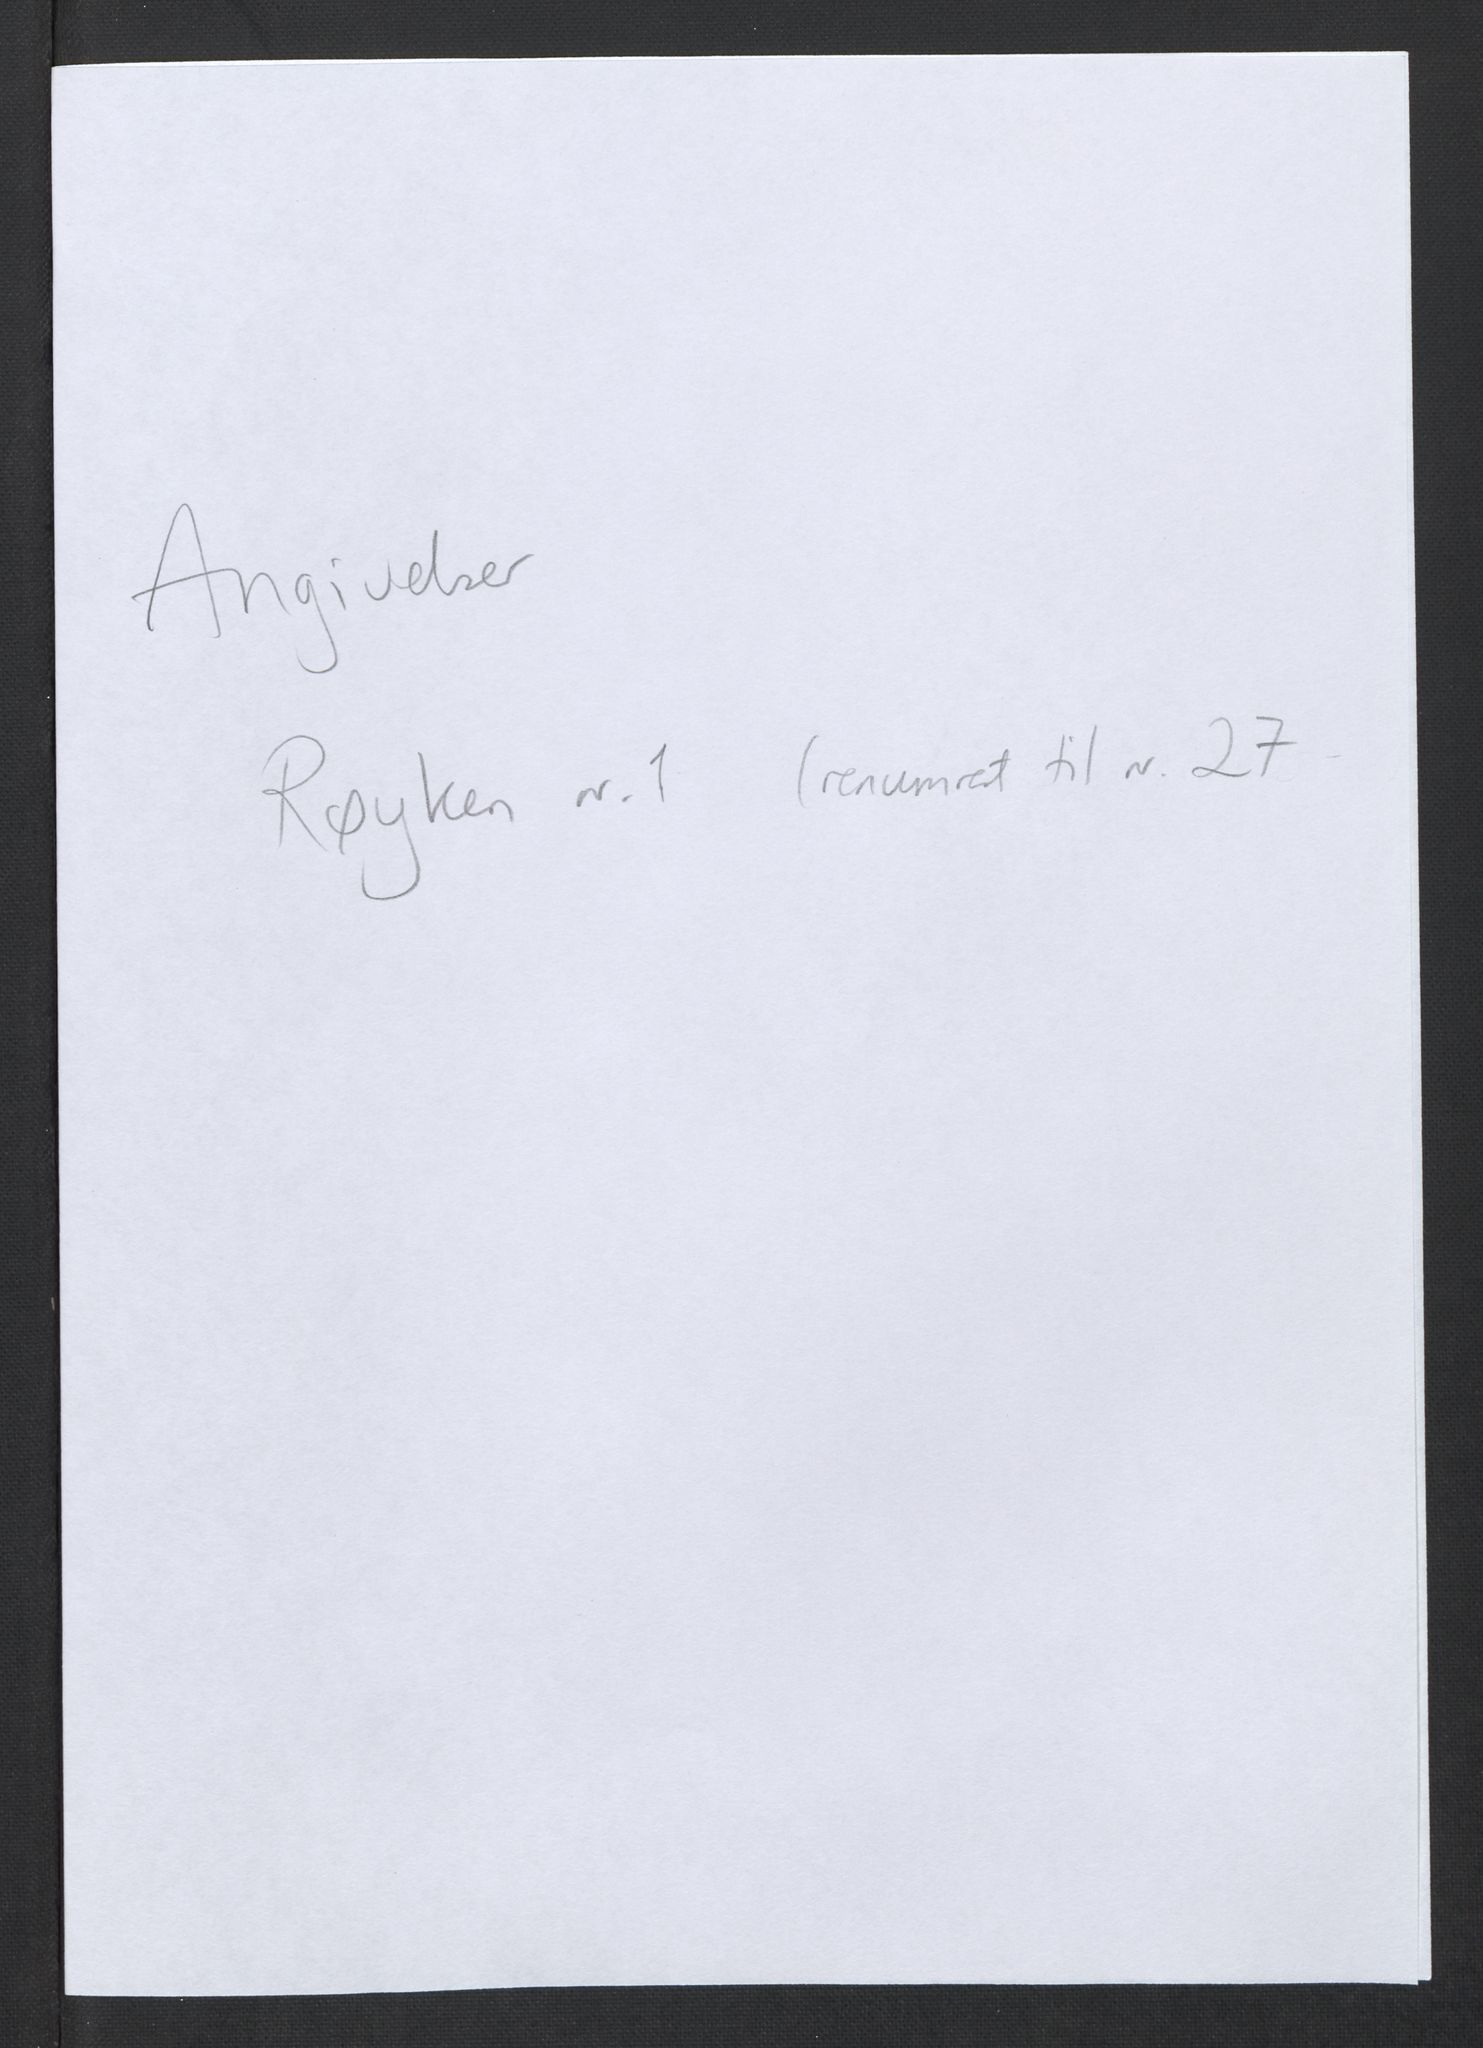 Angivelser
Røyken nr. 1 (renumret til nr. 27